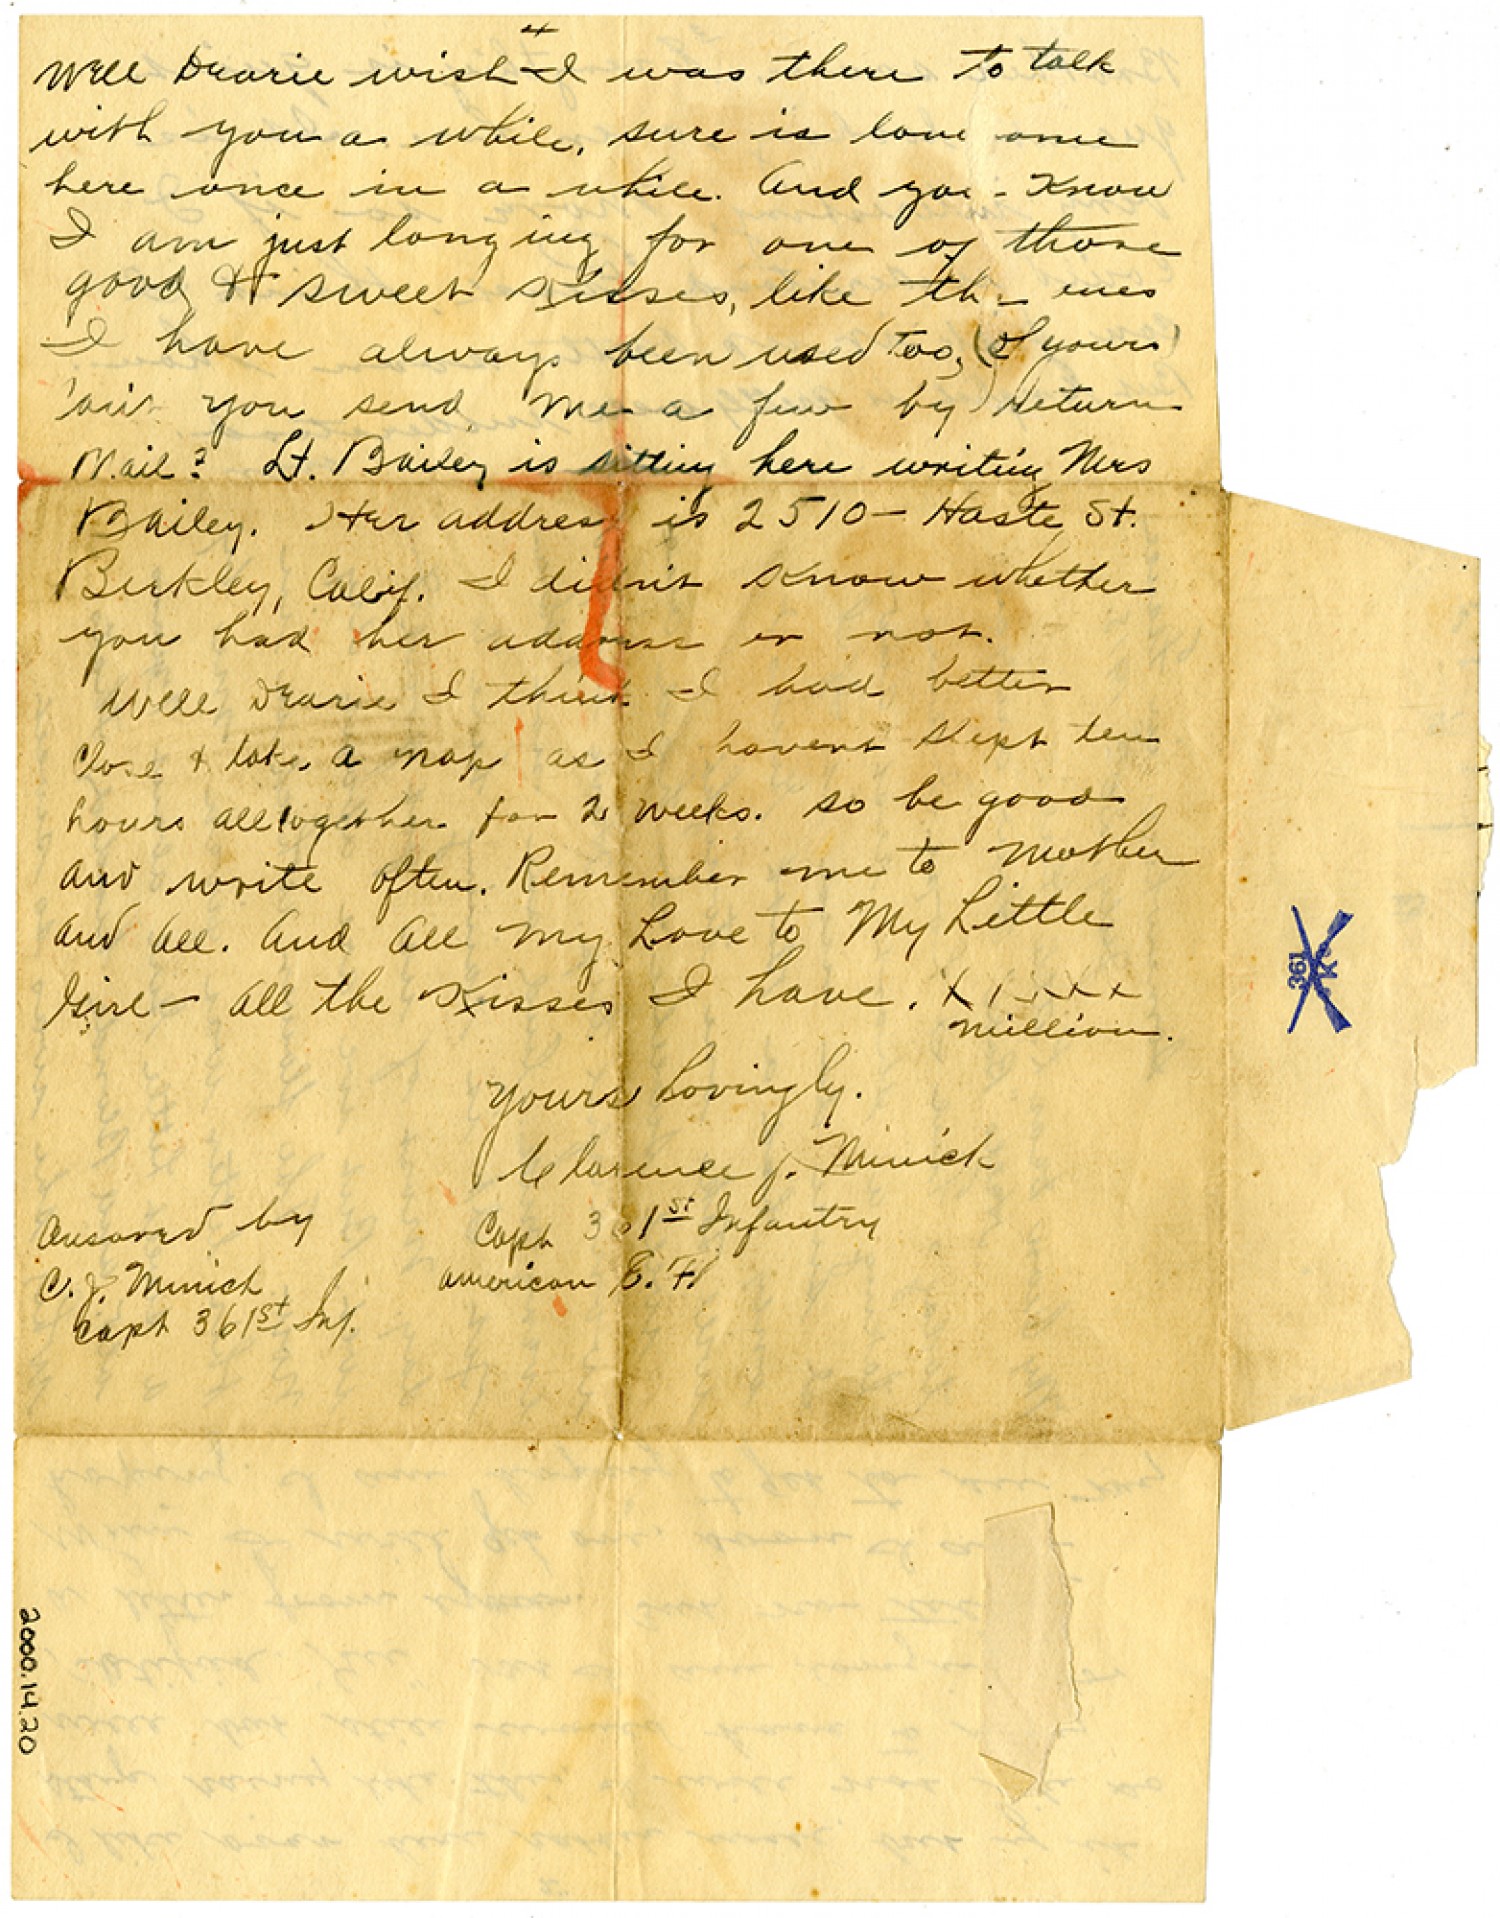 4
Well Dearie wish I was there to talk
with you a while, sure is lone ome
here once in a while. And you Know
I am just longing for one of those
good & sweet Kisses, like th ones
I have always been used too, (of yours)
you send me a few by Return
Mail? Lt. Bailey is sitting here writing Mrs
Bailey. Her address is 2510 - Haste St.
Berkley, Calif. I didn't Know whether
you had her address or not.
Well Dearie I think I had better
close & take a nap as I havent slept ten
hours alltogether for 2 weeks. so be good
and write often. Remember me to Mother
and all. And all my Love to My Little
Girl - all the Kisses I have. X X X X X X
million.
Yours Lovingly.
Clarence J. Minick
Capt 361st Infantry
American E. F.
Censored by
C. J. Minick
Capt 361st Inf.
361
K
2000.14.20